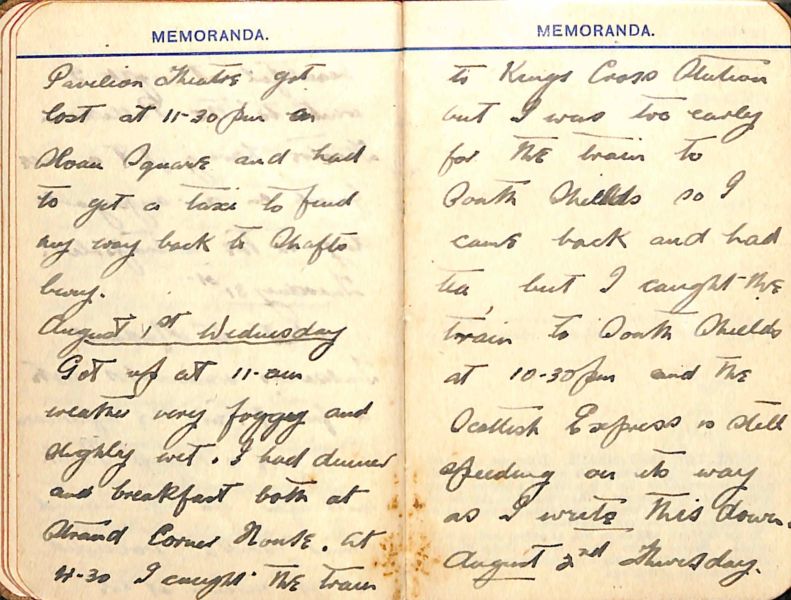 MEMORANDA.
Pavilion Theatre got
lost at 11-30 pm in
Sloan Square and had
to get a taxi to find
my way back to Shafts
bury.
August 1st Wednesday
Got up at 11-am
weather very foggy and
slighly wet. I had dinner
and breakfast both at
Strand Corner House. at
4-30 I caught the train
MEMORANDA.
to Kings Cross Station
but I was too early
for the train to
South Shields so I
came back and had
tea, but I caught the
train to South Shields
at 10-30 pm and the
Scottish Express is still
speeding on its way
as I write this down.
August 2nd Thursday.